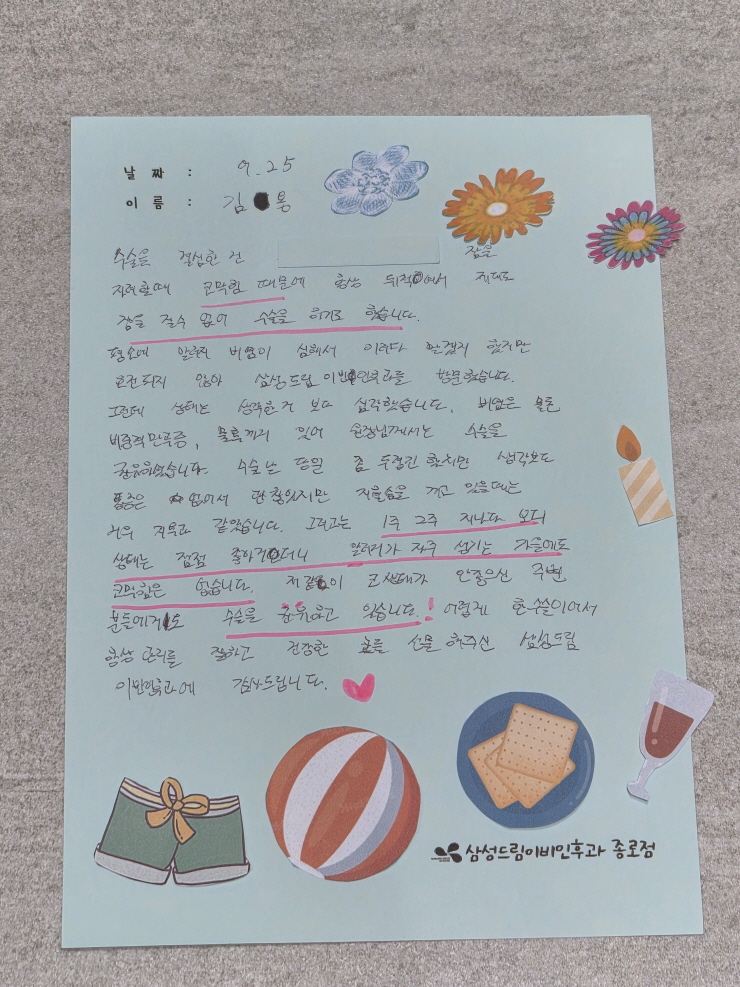 날 짜 : 9.25
이 름 : 김 용
수술을 결심한 건 잠을
자려할때 코막힘 때문에 항상 뒤척여서 제대로
잠을 잘수 없어 수술을 하기로 했습니다.
평소에 알레르기 비염이 심해서 이러다 말겠지 했지만
호전되지 않아 삼성드림이비인후과를 방문했습니다.
그런데 상태는 생각한 거 보다 심각했습니다. 비염은 물론
비중격만곡증, 물혹까지 있어 원장님께서는 수술을
권유하셨습니다 수술 날 당일 좀 두렵긴 했지만 생각보다
통증은 없어서 다행이지만 지혈솜을 끼고 있을때는
거의 지옥과 같았습니다. 그리고는 1주 2주 지나다 보니
상태는 점점 좋아지더니 알러지가 자주 생기는 가을에도
코막힘은 없습니다. 저같이 코상태가 안좋으신 주변
분들에게도 수술을 권유하고 있습니다.! 어렵게 한 수술이어서
항상 관리를 잘하고 건강한 코를 선물 해주신 삼성드림
이비인후과에 감사드립니다.
삼성드림이비인후과 종로점